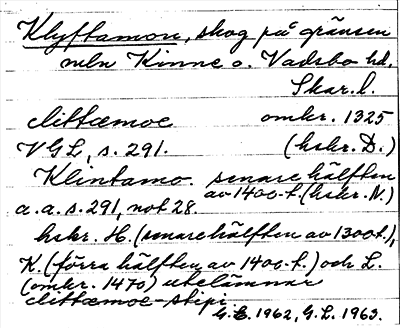 Klyftamon, skog på gränsen
mln Kinne o. Vadsbo hd,
Skar. l.
clittæmoe omkr. 1325
VGL, s. 291. (hskr. D.)
Klintamo. senare hälften
av 1400-t. (hskr. N.)
a. a. s. 291, not 28.
hskr. H. (senare hälften av 1300t.),
K. (förra hälften av 1400-t.) och L.
(omkr. 1470) utelämnar
clittæmoe-stipi
G.B. 1962, G.L. 1963.